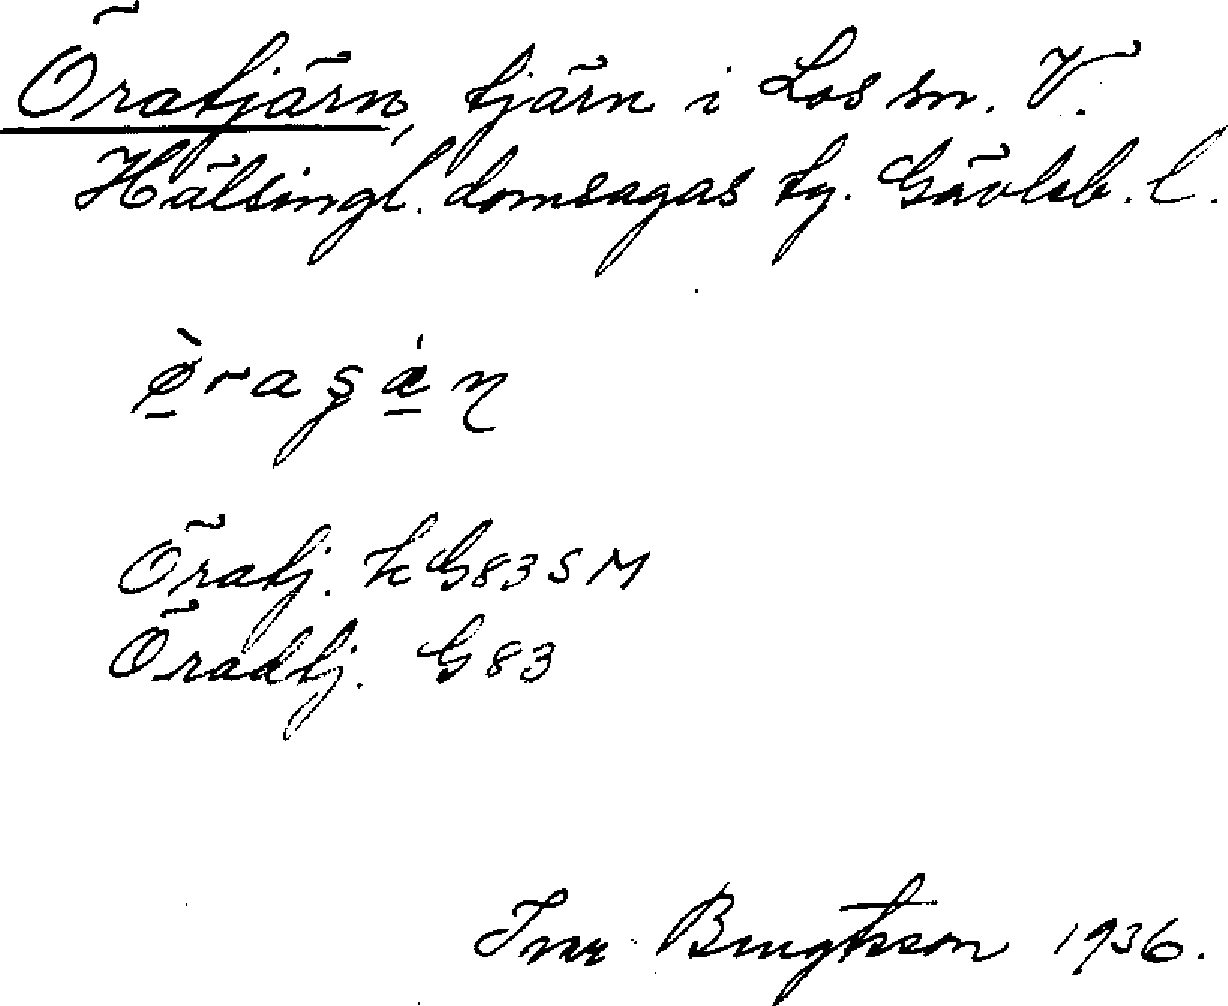 Öratjärn, tjärn i Los sn. V.
Hälsingl. domsagas tg. Gävleb. l.
Öratj. k G83 S M
Öradtj. G 83
Bengtsson 1936.